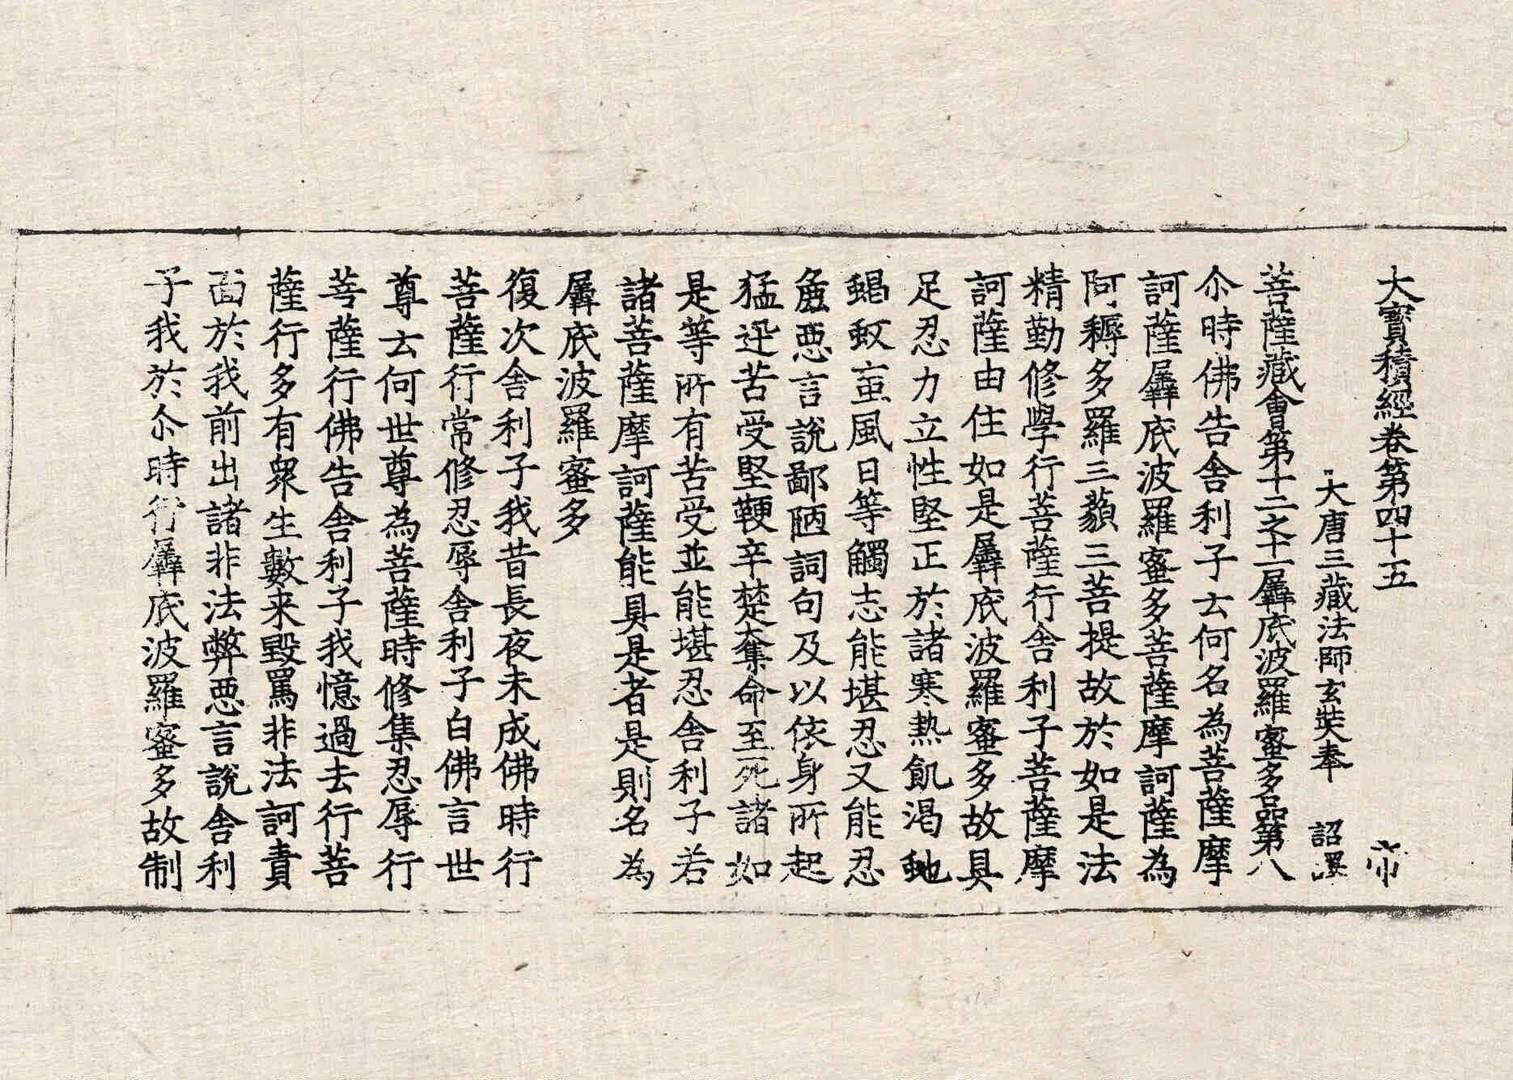 大寶積經卷第四十五
帝
大唐三藏法師玄奘奉 詔譯
菩薩藏會第十二之十一羼底波羅蜜多品第八
尒時佛告舍利子云何名為菩薩摩
訶薩羼底波羅蜜多菩薩摩訶薩為
阿耨多羅三藐三菩提故於如是法
精勤修學行菩薩行舍利子菩薩摩
訶薩由住如是羼底波羅蜜多故具
足忍力立性堅正於諸寒熱飢渴虵
蝎蚊䖟風日等觸志能堪忍又能忍
麁惡言說鄙陋詞句及以依身所起
猛迅苦受堅鞕辛楚奪命至死諸如
是等所有苦受並能堪忍舍利子若
諸菩薩摩訶薩能具是者是則名為
羼底波羅蜜多
復次舍利子我昔長夜未成佛時行
菩薩行常修忍辱舍利子白佛言世
尊云何世尊為菩薩時修集忍辱行
菩薩行佛告舍利子我憶過去行菩
薩行多有衆生數来毀罵非法訶責
面於我前出諸非法弊惡言說舍利
子我於尒時行羼底波羅蜜多故制